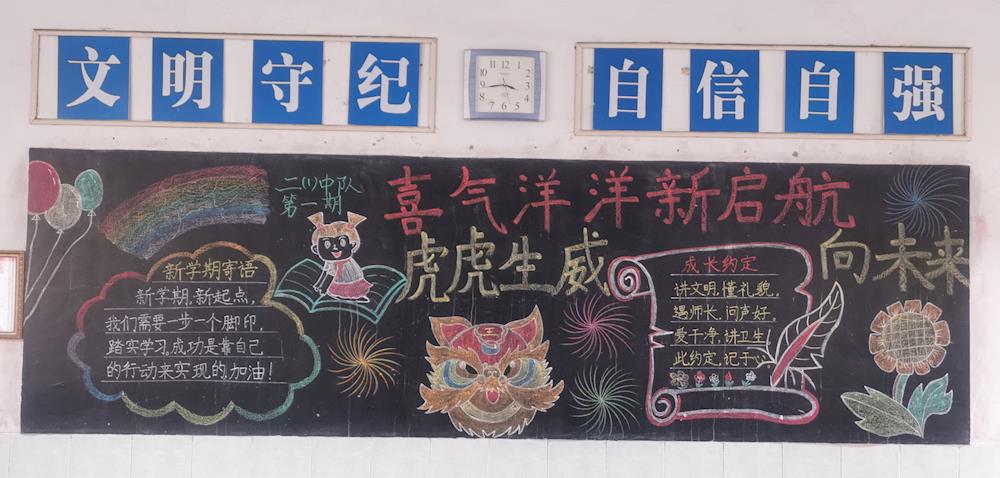 文明守纪
自信自强
二(1)中队
第一期
喜气洋洋新启航
虎虎生威
向未来
新学期寄语
新学期,新起点,
我们需要一步一个脚印,
踏实学习,成功是靠自己
的行动来实现的,加油!
成长约定
讲文明,懂礼貌,
遇师长,问声好。
爱干净,讲卫生!
此约定,记于心。
王